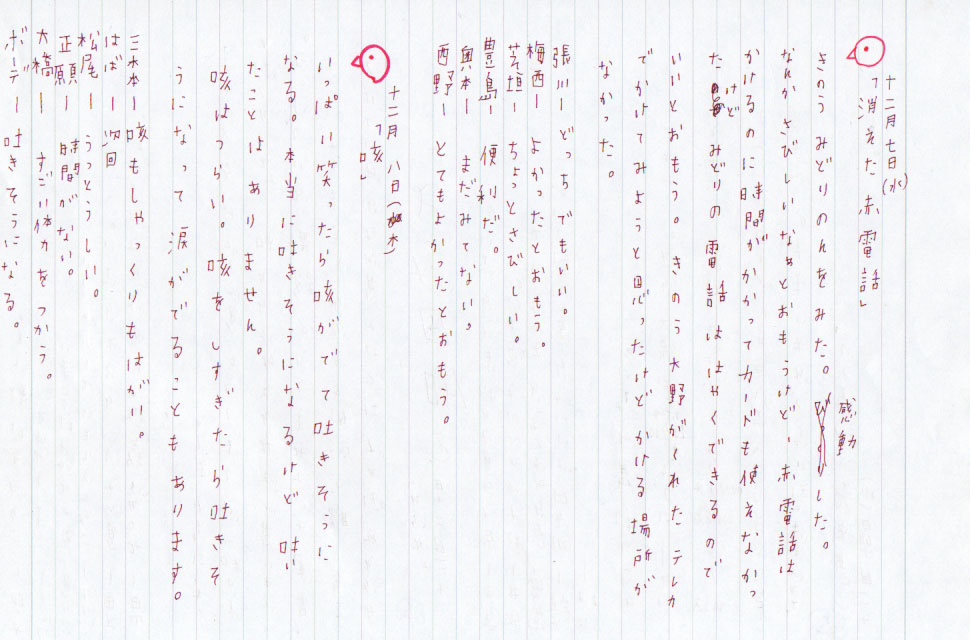 十二月七日(水)
「消えた赤電話」
きのうみどりのんをみた。感動した。
なんかさびしいなぁとおもうけど、赤電話は
かけるのに時間がかかってカードも使えなかっ
たけどみどりの電話ははやくできるので
いいとおもう。きのう大野がくれたテレカ
でかけてみようと思ったけどかける場所が
なかった。
張川ー どっちでもいい。
梅西ー よかったとおもう。
芝垣ー ちょっとさびしい。
豊島ー 便利だ。
奥本ー まだみてない。
西野ー とてもよかったとおもう。
十二月八日(木)
「咳」
いっぱい笑ったら咳がでて吐きそうに
なる。本当に吐きそうになるけど吐い
たことはありません。
咳はつらい。咳をしすぎたら吐きそ
うになって涙がでることもあります。
三木本ー咳もしゃっくりもはがい。
はばー 次回
松尾ー うっとうしい。
正願ー 時間がない。
大橋ー すごい体力をつかう。
ボーデー吐きそうになる。